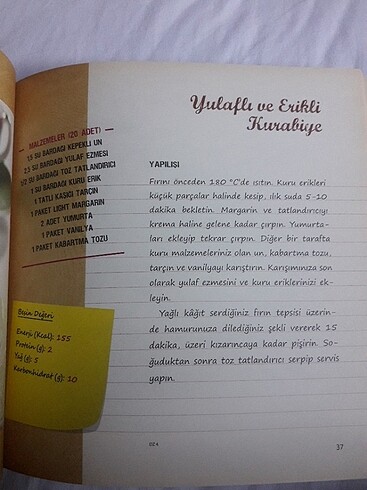 Yulaflı ve Erikli
Kurabiye
MALZEMELER (20 ADET)
1,5 SU BARDAĞI KEPEKLİ UN
2,5 SU BARDAĞI YULAF EZMESİ
1/2 SU BARDAĞI TOZ TATLANDIRICI
1 SU BARDAĞI KURU ERİK
1 TATLI KAŞIĞI TARÇIN
1 PAKET LIGHT MARGARİN
2 ADET YUMURTA
1 PAKET VANİLYA
1 PAKET KABARTMA TOZU
YAPILIŞI
Fırını önceden 180 °C'de ısıtın. Kuru erikleri
küçük parçalar halinde kesip, ılık suda 5-10
dakika bekletin. Margarin ve tatlandırıcıyı
krema haline gelene kadar çırpın. Yumurta-
ları ekleyip tekrar çırpın. Diğer bir tarafta
kuru malzemeleriniz olan un, kabartma tozu,
tarçın ve vanilyayı karıştırın. Karışımınıza son
olarak yulaf ezmesini ve kuru eriklerinizi ek-
leyin.
Yağlı kâğıt serdiğiniz fırın tepsisi üzerin-
de hamurunuza dilediğiniz şekli vererek 15
dakika, üzeri kızarıncaya kadar pişirin. So-
ğuduktan sonra toz tatlandırıcı serpip servis
yapın.
Besin Değeri
Enerji (Kcal): 155
Protein (g): 2
Yağ (g): 5
Karbonhidrat (g): 10
37